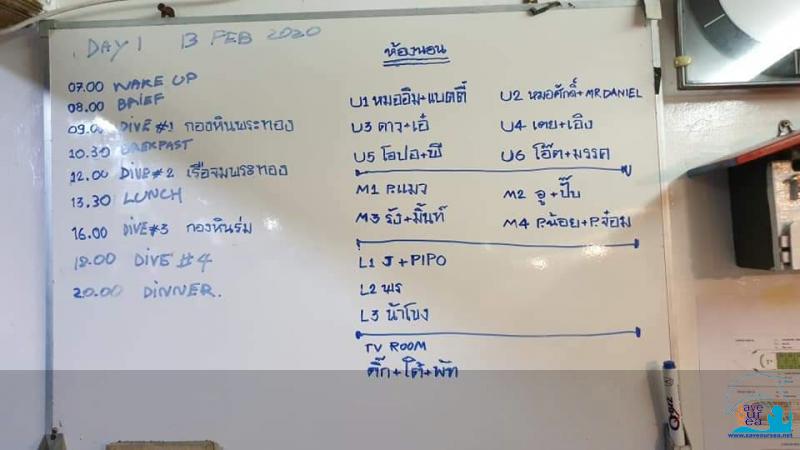 DAY 1 13 FEB 2020
07.00 WAKE UP
08.00 BRIEF
09.00 DIVE #1 กองหินพระทอง
10.30 BREKFAST
12.00 DIVE #2 เรือจมพระทอง
13.30 LUNCH
16.00 DIVE #3 กองหินร่ม
18.00 DIVE #4
20.00 DINNER.
ห้องนอน
U1 หมออิม+แบตตี้ U2 หมอศักดิ์+MR.DANIEL
U3 ดาว+เอ๋ U4 เตย+เอิง
U5 โอปอ+พี U6 โอ๊ต+มรรค
M1 P.แมว M2 อู+ปั๊บ
M3 รัง+มิ้นท์ M4 P.น้อย+P.จ๋อม
L1 J+PIPO
L2 พร
L3 น้าโขง
TV ROOM
ติ๊ก+โต้+พัท
save our sea
www.saveoursea.net